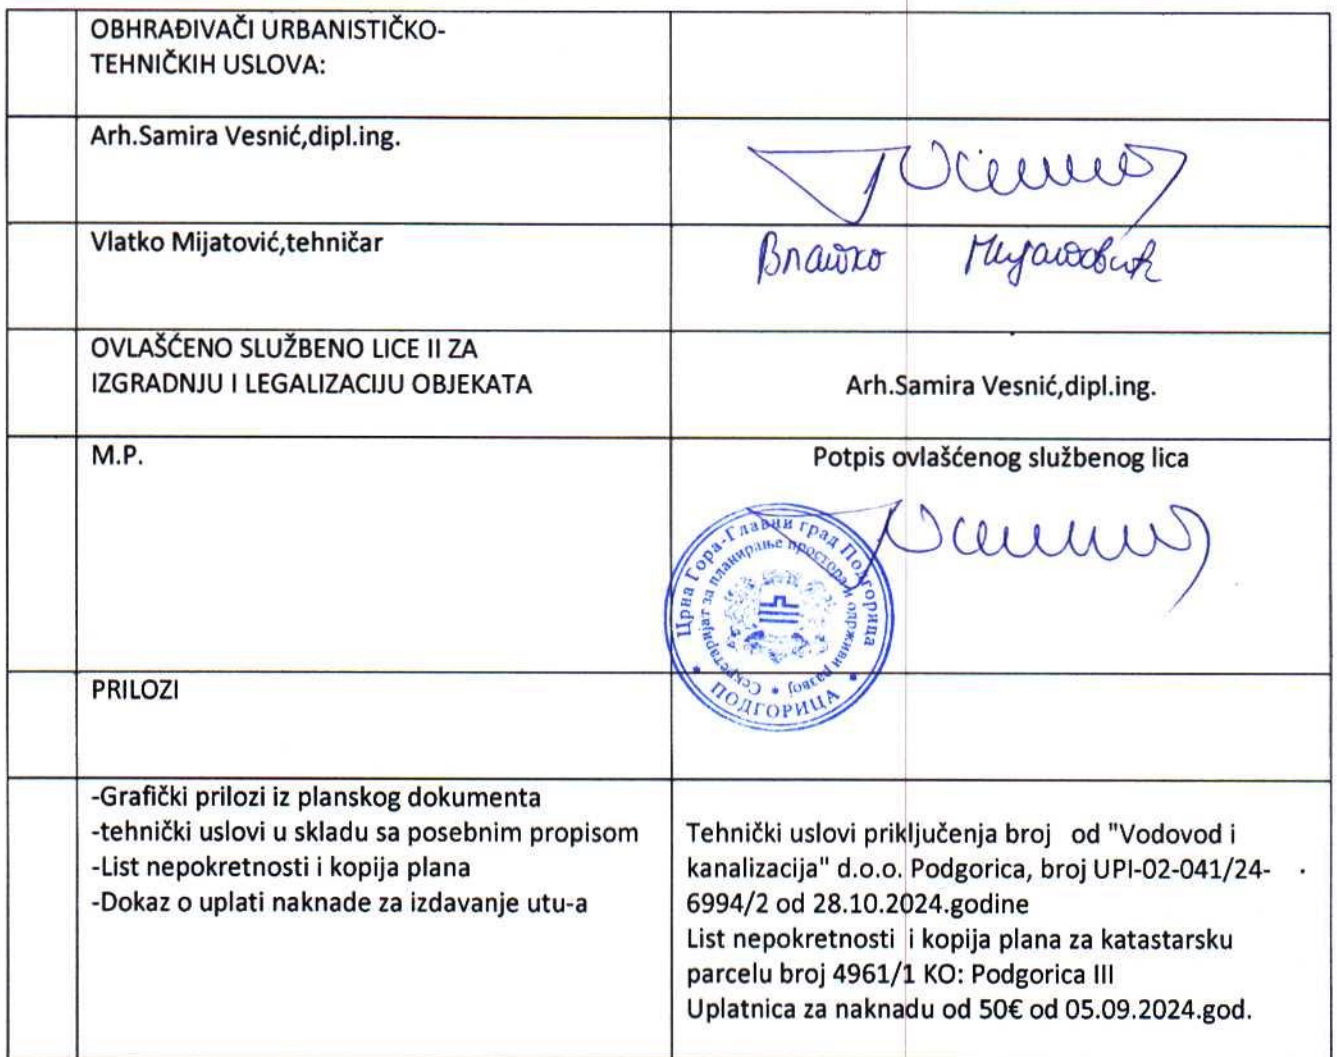 OBHRAĐIVAČI URBANISTIČKO-
TEHNIČKIH USLOVA:
Arh.Samira Vesnić,dipl.ing.
Vlatko Mijatović,tehničar
Влатко Мијатовић
OVLAŠĆENO SLUŽBENO LICE II ZA
IZGRADNJU I LEGALIZACIJU OBJEKATA
Arh.Samira Vesnić,dipl.ing.
M.P.
Potpis ovlašćenog službenog lica
Црна Гора-Главни град Подгорица
Секретаријат за планирање простора и одрживи развој
ПОДГОРИЦА
PRILOZI
-Grafički prilozi iz planskog dokumenta
-tehnički uslovi u skladu sa posebnim propisom
-List nepokretnosti i kopija plana
-Dokaz o uplati naknade za izdavanje utu-a
Tehnički uslovi priključenja broj od "Vodovod i
kanalizacija" d.o.o. Podgorica, broj UPI-02-041/24-
6994/2 od 28.10.2024.godine
List nepokretnosti i kopija plana za katastarsku
parcelu broj 4961/1 KO: Podgorica III
Uplatnica za naknadu od 50€ od 05.09.2024.god.